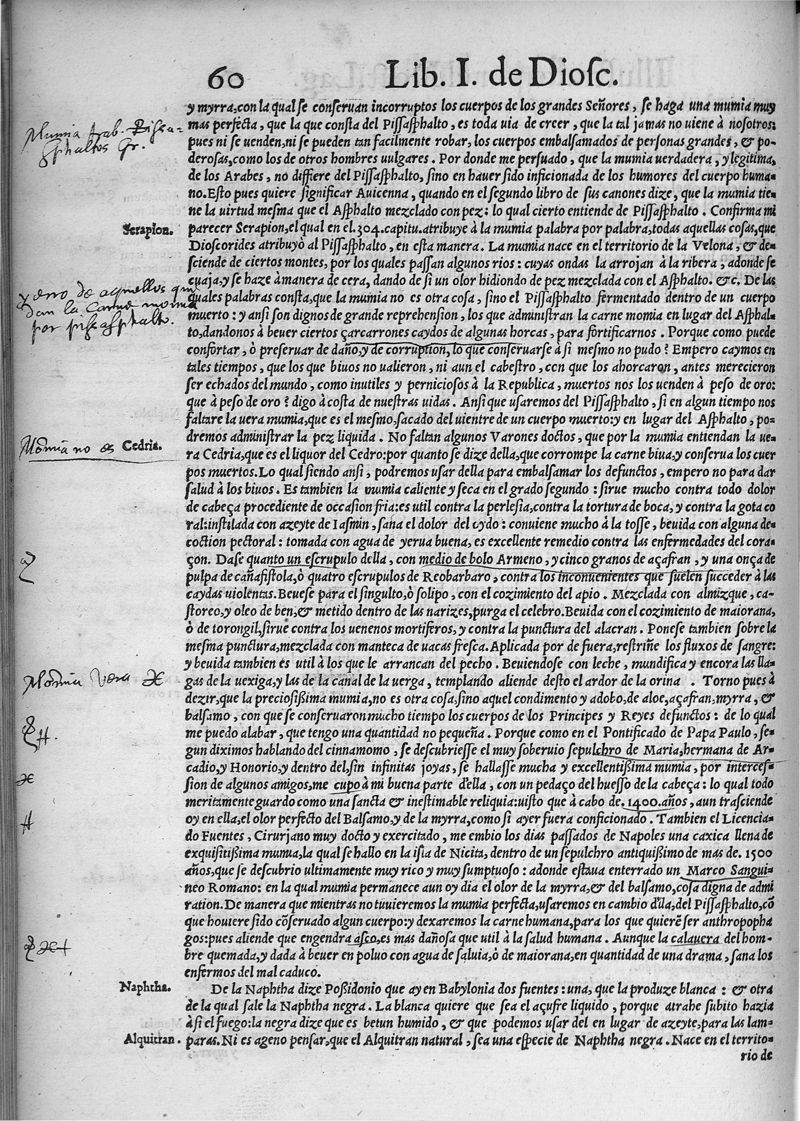 60 Lib. I. de Diosc.
y myrra, con la qual se conseruan incorruptos los cuerpos de los grandes Señores, se haga una mumia muy
mas perfecta, que la que consta del Pissasphalto, es toda uia de creer, que la tal jamas no uiene à nosotros:
pues ni se uenden, ni se pueden tan facilmente robar, los cuerpos embalsamados de personas grandes, & po-
derosas, como los de otros hombres uulgares. Por donde me persuado, que la mumia uerdadera, y legitima,
de los Arabes, no differe del Pissasphalto, sino en hauer sido inficionada de los humores del cuerpo huma-
no. Esto pues quiere significar Auicenna, quando en el segundo libro de sus canones dize, que la mumia tie-
ne la uirtud mesma que el Asphalto mezclado con pez: lo qual cierto entiende de Pissasphalto. Confirma mi
Serapion.
parecer Serapion, el qual en el .304. capitu. atribuye à la mumia palabra por palabra, todas aquellas cosas, que
Dioscorides atribuyò al Pissasphalto, en esta manera. La mumia nace en el territorio de la Velona, & de-
sciende de ciertos montes, por los quales passan algunos rios: cuyas ondas la arrojan à la ribera, adonde se
cuaja, y se haze à manera de cera, dando de sì un olor hidiondo de pez mezclada con el Asphalto. &c. De las
quales palabras consta, que la mumia no es otra cosa, sino el Pissasphalto fermentado dentro de un cuerpo
muerto: y ansi son dignos de grande reprehension, los que administran la carne momia en lugar del Asphal-
to, dandonos à beuer ciertos çarcarrones caydos de algunas horcas, para fortificarnos. Porque como puede
confortar, ò preseruar de daño, y de corruption, lo que conseruarse à sì mesmo no pudo? Empero caymos en
tales tiempos, que los que biuos no ualieron, ni aun el cabestro, con que los ahorcaron, antes merecieron
ser echados del mundo, como inutiles y perniciosos à la Republica, muertos nos los uenden à peso de oro:
que à peso de oro? digo à costa de nuestras uidas. Ansi que usaremos del Pissasphalto, si en algun tiempo nos
faltare la uera mumia, que es el mesmo, sacado del uientre de un cuerpo muerto: y en lugar del Asphalto, po-
dremos administrar la pez liquida. No faltan algunos Varones doctos, que por la mumia entiendan la ue-
Cedria.
ra Cedria, que es el liquor del Cedro: por quanto se dize della, que corrompe la carne biua, y conserua los cuer
pos muertos. Lo qual siendo ansi, podremos usar della para embalsamar los defunctos, empero no para dar
salud à los biuos. Es tambien la mumia caliente y seca en el grado segundo: sirue mucho contra todo dolor
de cabeça procediente de occasion fria: es util contra la perlesia, contra la tortura de boca, y contra la gota co
ral: instilada con azeyte de Iasmin, sana el dolor del oydo: conuiene mucho à la tosse, beuida con alguna de-
coction pectoral: tomada con agua de yerua buena, es excellente remedio contra las enfermedades del cora-
çon. Dase quanto un escrupulo della, con medio de bolo Armeno, y cinco granos de açafran, y una onça de
pulpa de cañafistola, ò quatro escrupulos de Reobarbaro, contra los inconuenientes que suelen succeder à las
caydas uiolentas. Beuese para el singulto, ò solipo, con el cozimiento del apio. Mezclada con almizque, ca-
storeo, y oleo de ben, & metido dentro de las narizes, purga el celebro. Beuida con el cozimiento de maiorana,
ò de torongil, sirue contra los uenenos mortiferos, y contra la punctura del alacran. Ponese tambien sobre la
mesma punctura, mezclada con manteca de uacas fresca. Aplicada por de fuera, restriñe los fluxos de sangre:
y beuida tambien es util à los que le arrancan del pecho. Beuiendose con leche, mundifica y encora las lla-
gas de la uexiga, y las de la canal de la uerga, templando aliende desto el ardor de la orina. Torno pues à
dezir, que la preciosissima mumia, no es otra cosa, sino aquel condimento y adobo, de aloe, açafran, myrra, &
balsamo, con que se conseruaron mucho tiempo los cuerpos de los Principes y Reyes defunctos: de lo qual
me puedo alabar, que tengo una quantidad no pequeña. Porque como en el Pontificado de Papa Paulo, se-
gun diximos hablando del cinnamomo, se descubriesse el muy soberuio sepulchro de Maria, hermana de Ar-
cadio, y Honorio, y dentro del, sin infinitas joyas, se hallasse mucha y excellentissima mumia, por interces-
sion de algunos amigos, me cupo à mi buena parte d'ella, con un pedaço del huesso de la cabeça: lo qual todo
meritamente guardo como una sancta & inestimable reliquia: uisto que à cabo de .1400. años, aun trasciende
oy en ella, el olor perfecto del Balsamo, y de la myrra, como si ayer fuera conficionado. Tambien el Licencia-
do Fuentes, Cirurjano muy docto y exercitado, me embio los dias passados de Napoles una caxica llena de
exquisitissima mumia, la qual se hallo en la isla de Nicita, dentro de un sepulchro antiquissimo de mas de. 1500
años, que se descubrio ultimamente muy rico y muy sumptuoso: adonde estaua enterrado un Marco Sangui-
neo Romano: en la qual mumia permanece aun oy dia el olor de la myrra, & del balsamo, cosa digna de admi
ration. De manera que mientras no tuuieremos la mumia perfecta, usaremos en cambio d'lla, del Pissasphalto, cõ
que houiere sido cõseruado algun cuerpo: y dexaremos la carne humana, para los que quierẽ ser anthropopha
gos: pues aliende que engendra asco, es mas dañosa que util à la salud humana. Aunque la calauera del hom-
bre quemada, y dada à beuer en poluo con agua de saluia, ò de maiorana, en quantidad de una drama, sana los
enfermos del mal caduco.
Naphtha.
De la Naphtha dize Possidonio que ay en Babylonia dos fuentes: una, que la produze blanca: & otra
de la qual sale la Naphtha negra. La blanca quiere que sea el açufre liquido, porque atrahe subito hazia
à sì el fuego: la negra dize que es betun humido, & que podemos usar del en lugar de azeyte, para las lam-
Alquitran.
paras. Ni es ageno pensar, que el Alquitran natural, sea una especie de Naphtha negra. Nace en el territo-
rio de
Mumia Arab.
gr.
yerro de aquellos que
dan la Carne momia
por pisasphalto.
Momia no es
Momia Vera